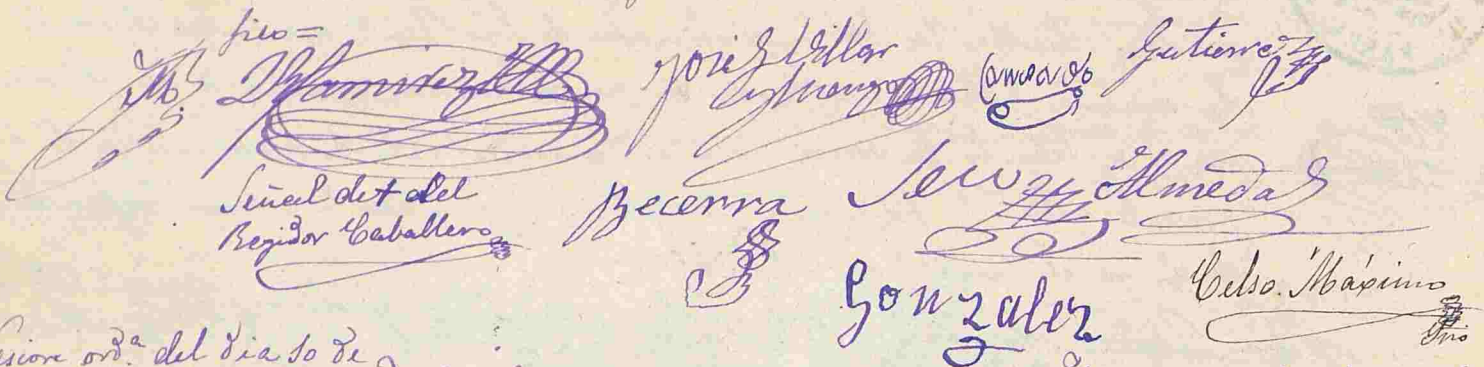 fico =
D Ramirez José Villar Cansado Gutierrez
Señal de + del
Regidor Caballero
Becerra Almeda
Gonzalez Celso Máximo
Srio
sion ord.ª del dia 10 de